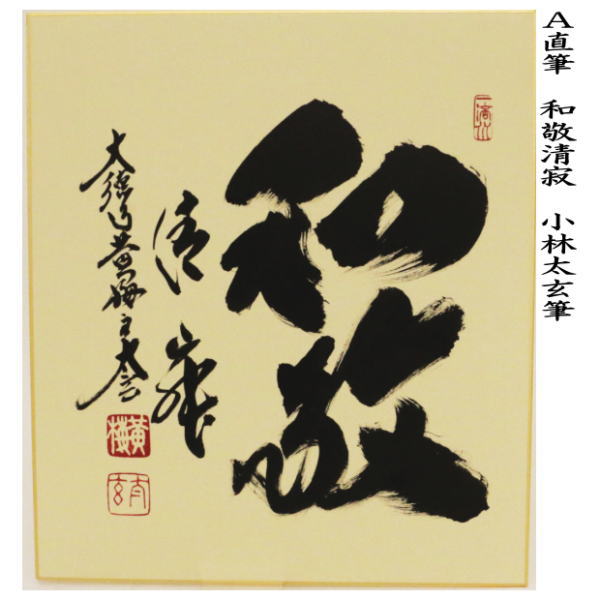 A直筆 和敬清寂 小林太玄筆
和敬
清寂
大徳寺黄梅主太玄
黄梅
太玄